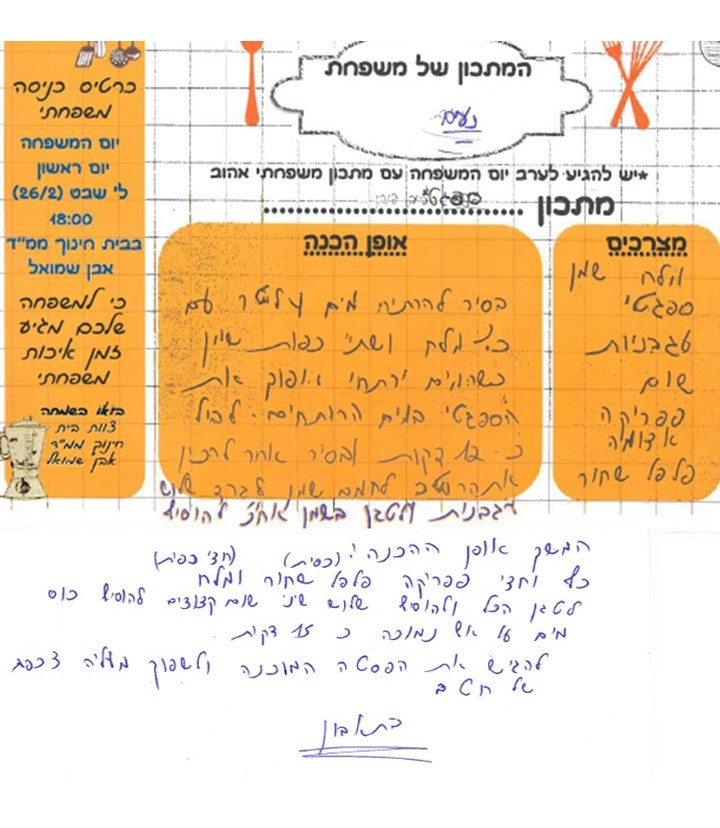 המתכון של משפחת
נעים
*יש להגיע לערב יום המשפחה עם מתכון משפחתי אהוב
מתכון ספגטי
מצרכים
מלח שמן
ספגטי
עגבניות
שום
פפריקה
אדומה
פלפל שחור
אופן הכנה
בסיר להרתיח מים וליטר עם
כף מלח ושתי כפות שמן
כשהמים ירתחו לשפוך את
הספגטי במים הרותחים. לבשל
כ-12 דקות ובסיר אחר להכין
את הרוטב לחמם שמן לגרד שלוש
עגבניות ולטגן בשמן ואח"כ להוסיף
המשך אופן ההכנה: (כפית) (חצי כפית)
כף וחצי פפריקה פלפל שחור ומלח
לטגן הכל ולהוסיף שלוש שיני שום קצוצים להוסיף כוס
מים על אש נמוכה כ 15 דקות
להגיש את הפסטה המוכנה ולשפוך מעליה 2 כפות
של רוטב
בתאבון
כרטיס כניסה
משפחתי
יום המשפחה
יום ראשון
ל' שבט (26/2)
18:00
בבית חינוך ממ"ד
אבן שמואל
כי למשפחה
שלכם מגיע
זמן איכות
משפחתי
בואו בשמחה
צוות בית
חינוך ממ"ד
אבן שמואל